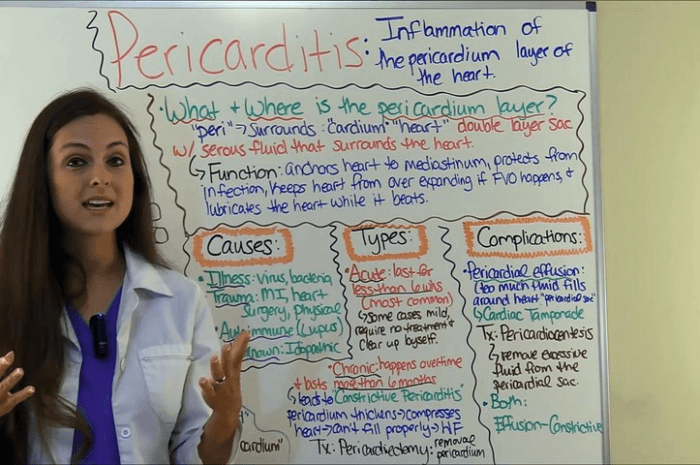 Pericarditis:
Inflammation of
the pericardium layer of
the heart.
• What + Where is the pericardium layer?
"peri" → surrounds : "cardium" "heart" double layer sac
w/ serous fluid that surrounds the heart.
↳ Function: anchors heart to mediastinum, protects from
infection, keeps heart from over expanding if FVO happens, +
lubricates the heart while it beats.
Causes:
• Illness: virus, bacteria
Trauma: MI, heart
surgery, physical
• Autoimmune (Lupus)
Idiopathic
Types:
• Acute: last for
less than 6 wks
(most common)
↳ some cases mild,
require no treatment +
clear up byself.
• Chronic: happens overtime
+ lasts more than 6 months
↳ leads to "Constrictive Pericarditis"
pericardium thickens → compresses
heart → can't fill properly → HF
Tx: Pericardiectomy: removal
pericardium
cardium"
Complications:
• Pericardial effusion:
(too much fluid fills
around heart "pericardial sac"
↳ Cardiac Tamponade
Tx: Pericardiocentesis
↳ remove excessive
fluid from the
pericardial sac.
• Both:
Effusion-Constrictive